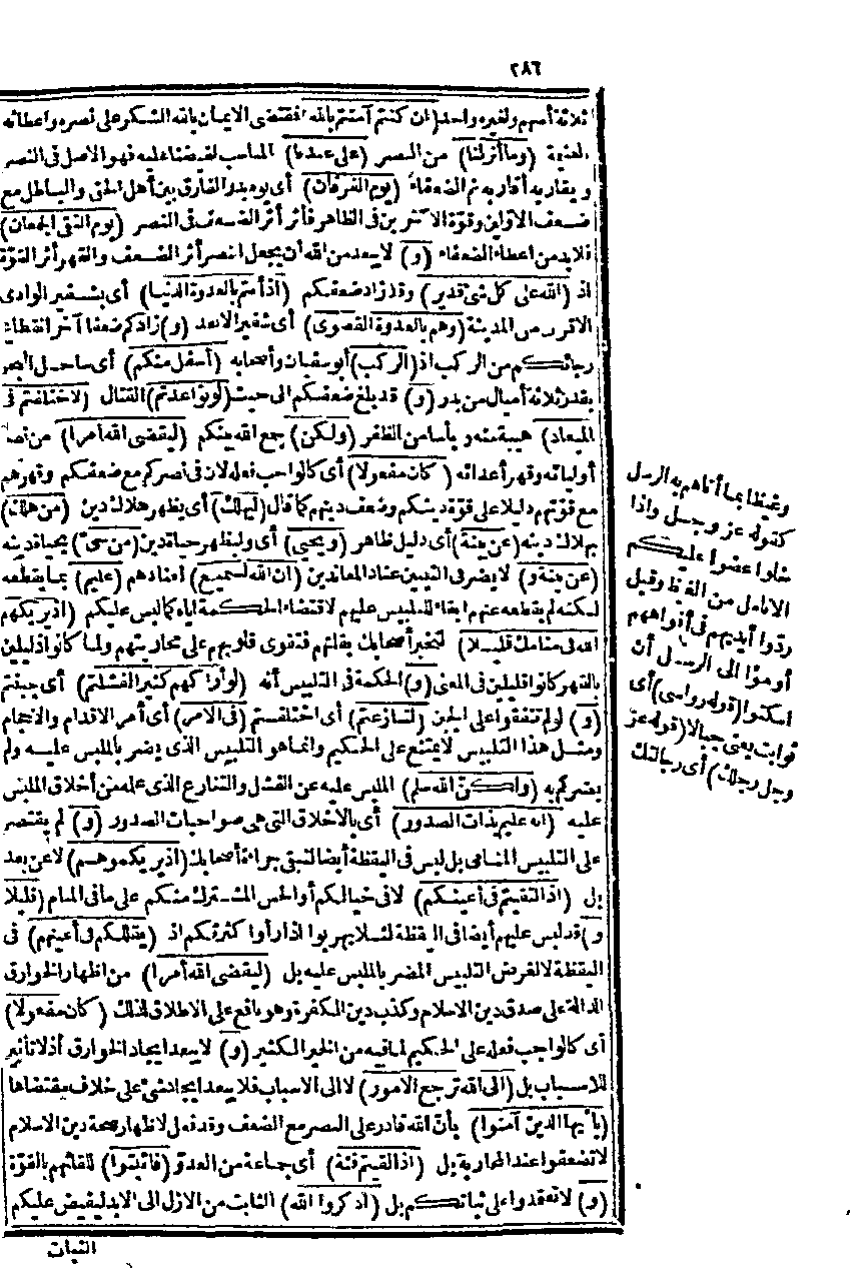 ٢٨٦
ثلاثة أسهم ولغيره واحد (ان كنتم آمنتم بالله) فقتضى الايمان بالله الشكر على نصره واعطائه
الغنيمة (وما أنزلنا) من النصر (على عبدنا) المناسب لفيضنا عليه فهو الاصل فى النصر
ويقاربه أقاربه ثم الضعفاء (يوم الفرقان) أى يوم بدر الفارق بين أهل الحق والباطل مع
ضعف الاولين وقوة الآخرين فى الظاهر فأثر أثر الضعف فى النصر (يوم التقى الجمعان)
فلابد من اعطاء الضعفاء (و) لا يبعد من الله أن يجعل للنصر أثر الضعف وللقهر أثر القوة
اذ (الله على كل شئ قدير) وقد زاد ضعفكم (اذ أنتم بالعدوة الدنيا) أى بشفير الوادى
الاقرب من المدينة (وهم بالعدوة القصوى) أى شفيره الابعد (و) زادكم ضعفا آخر انقطاع
رجائكم من الركب اذ (الركب) أبو سفيان وأصحابه (أسفل منكم) أى ساحل البحر
بقدر ثلاثة أميال من بدر (و) قد بلغ ضعفكم الى حيث (لو تواعدتم) القتال (لاختلفتم فى
الميعاد) هيبة منه و يأسا من الظفر (ولكن) جمع الله بينكم (ليقضى الله أمرا) من نصر
أوليائه وقهر أعدائه (كان مفعولا) أى كالواجب فعله لان فى نصركم مع ضعفكم وقهرهم
مع قوتهم دليلا على قوة دينكم وضعف دينهم كما قال (ليهلك) أى يظهر هلاك دين (من هلك)
بهلاك دينه (عن بينة) أى دليل ظاهر (ويحيى) أى وليظهر حياة دين (من حى) بحياة دينه
(عن بينة و) لا يضر فى التبيين عناد المعاندين (ان الله لسميع) لعنادهم (عليم) بما يقطعه
لكنه لم يقطعه عنهم ابقاء للتلبيس عليهم لاقتضاء الحكمة اياه كما لبس عليكم (اذ يريكهم
الله فى منامك قليلا) لتخبر أصحابك بقلتهم فتقوى قلوبهم على محاربتهم ولما كانوا ذليلين
بالقهر كانوا قليلين فى المعنى (و) الحكمة فى التلبيس أنه (لو أراكهم كثيرا لفشلتم) أى جبنتم
(و) لو لم تتفقوا على الجبن (لتنازعتم) أى اختلفتم (فى الامر) أى أمر الاقدام والاحجام
ومثل هذا التلبيس لا يمتنع على الحكيم وانما هو التلبيس الذى يضر بالملبس عليه ولم
يضركم به (ولكن الله سلم) الملبس عليه عن الفشل والتنازع الذى علمه من أخلاق الملبس
عليه (انه عليم بذات الصدور) أى بالاخلاق التى هى صواحبات الصدور (و) لم يقتصر
على التلبيس المنامى بل لبس فى اليقظة أيضا لتبقى جراءة أصحابك (اذ يريكموهم) لا عن بعد
بل (اذ التقيتم فى أعينكم) لا فى خيالكم أو الحس المشترك منكم على ما فى المنام (قليلا
و) قد لبس عليهم أيضا فى اليقظة لئلا يهربوا اذا رأوا كثرتكم اذ (يقللكم فى أعينهم) فى
اليقظة لا لغرض التلبيس المضر بالملبس عليه بل (ليقضى الله أمرا) من اظهار الخوارق
الدالة على صدق دين الاسلام وكذب دين الكفرة وهو نافع على الاطلاق فلذلك (كان مفعولا)
أى كالواجب فعله على الحكيم لما فيه من الخير الكثير (و) لا يبعد ايجاد الخوارق اذ لا تأثير
للاسباب بل (الى الله ترجع الامور) لا الى الاسباب فلا يبعد ايجاد شئ على خلاف مقتضاها
(يا أيها الذين آمنوا) بأن الله قادر على النصر مع الضعف وقد فعل لاظهار صحة دين الاسلام
لا تضعفوا عند المحاربة بل (اذا لقيتم فئة) أى جماعة من العدو (فاثبتوا) للقائهم بالقوة
(و) لا تعتمدوا على ثباتكم بل (اذكروا الله) الثابت من الازل الى الابد ليفيض عليكم
الثبات
وغيظا بما أتاهم به الرسل
كقوله عز وجل واذا
خلوا عضوا عليكم
الانامل من الغيظ وقيل
ردوا أيديهم فى أفواههم
أومؤا الى الرسل أن
اسكتوا (قوله رواسى) أى
ثوابت يعنى جبالا (قوله عز
وجل رجلك) أى رجالتك